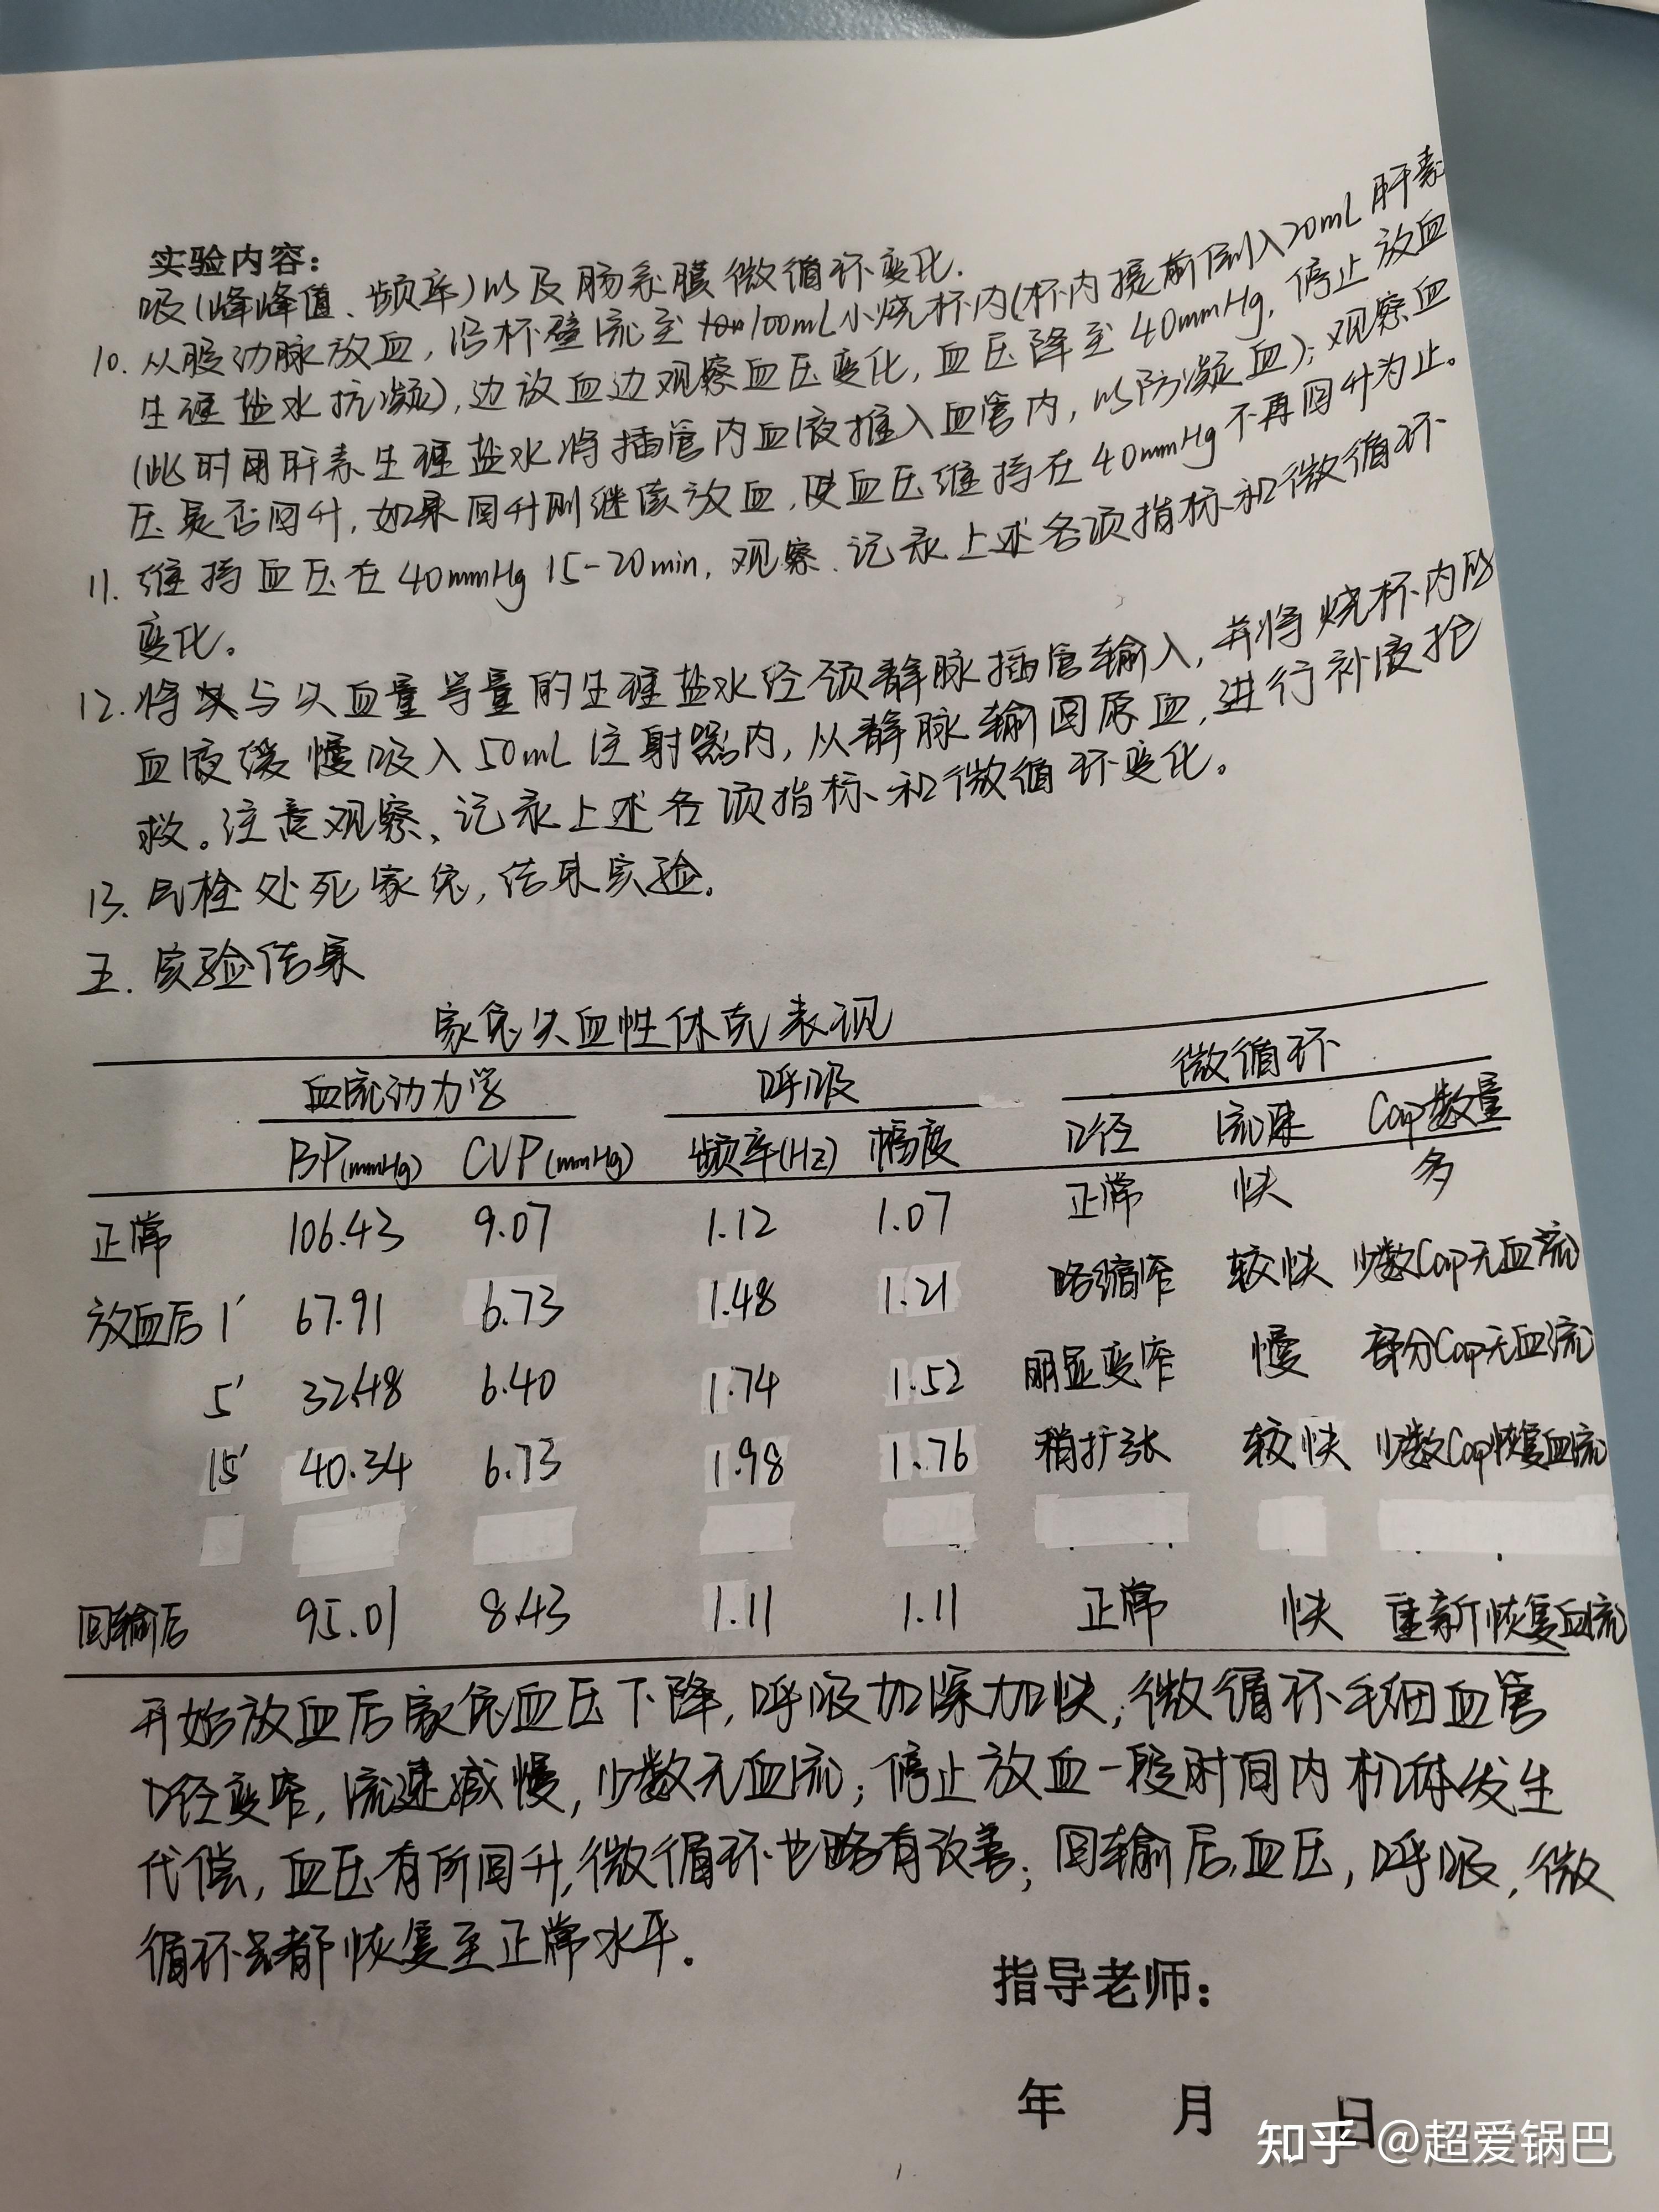 实验内容：
吸(峰峰值、频率)以及肠系膜微循环变化.
10. 从股动脉放血，沿杯壁流至100mL小烧杯内(杯内提前倒入20mL肝素
生理盐水抗凝)，边放血边观察血压变化，血压降至40mmHg，停止放血
(此时用肝素生理盐水将插管内血液推入血管内，以防凝血)；观察血
压是否回升，如果回升则继续放血，使血压维持在40mmHg不再回升为止。
11. 维持血压在40mmHg 15-20min，观察、记录上述各项指标和微循环
变化。
12. 将与失血量等量的生理盐水经颈静脉插管输入，并将烧杯内的
血液缓慢吸入50mL注射器内，从静脉输回原血，进行补液抢
救。注意观察、记录上述各项指标和微循环变化。
13. 气栓处死家兔，结束实验。
五. 实验结果
家兔失血性休克表现
血流动力学 呼吸 微循环
BP(mmHg) CVP(mmHg) 频率(Hz) 幅度 口径 流速 Cap数量
正常 106.43 9.07 1.12 1.07 正常 快 多
放血后 1′ 67.91 6.73 1.48 1.21 略缩窄 较快 少数Cap无血流
5′ 32.48 6.40 1.74 1.52 明显变窄 慢 部分Cap无血流
15′ 40.34 6.73 1.98 1.76 稍扩张 较快 少数Cap恢复血流
回输后 95.01 8.43 1.11 1.11 正常 快 重新恢复血流
开始放血后家兔血压下降，呼吸加深加快；微循环毛细血管
口径变窄，流速减慢，少数无血流；停止放血一段时间内机体发生
代偿，血压有所回升，微循环也略有改善；回输后，血压，呼吸，微
循环都恢复至正常水平。
指导老师：
年 月 日
知乎 @超爱锅巴